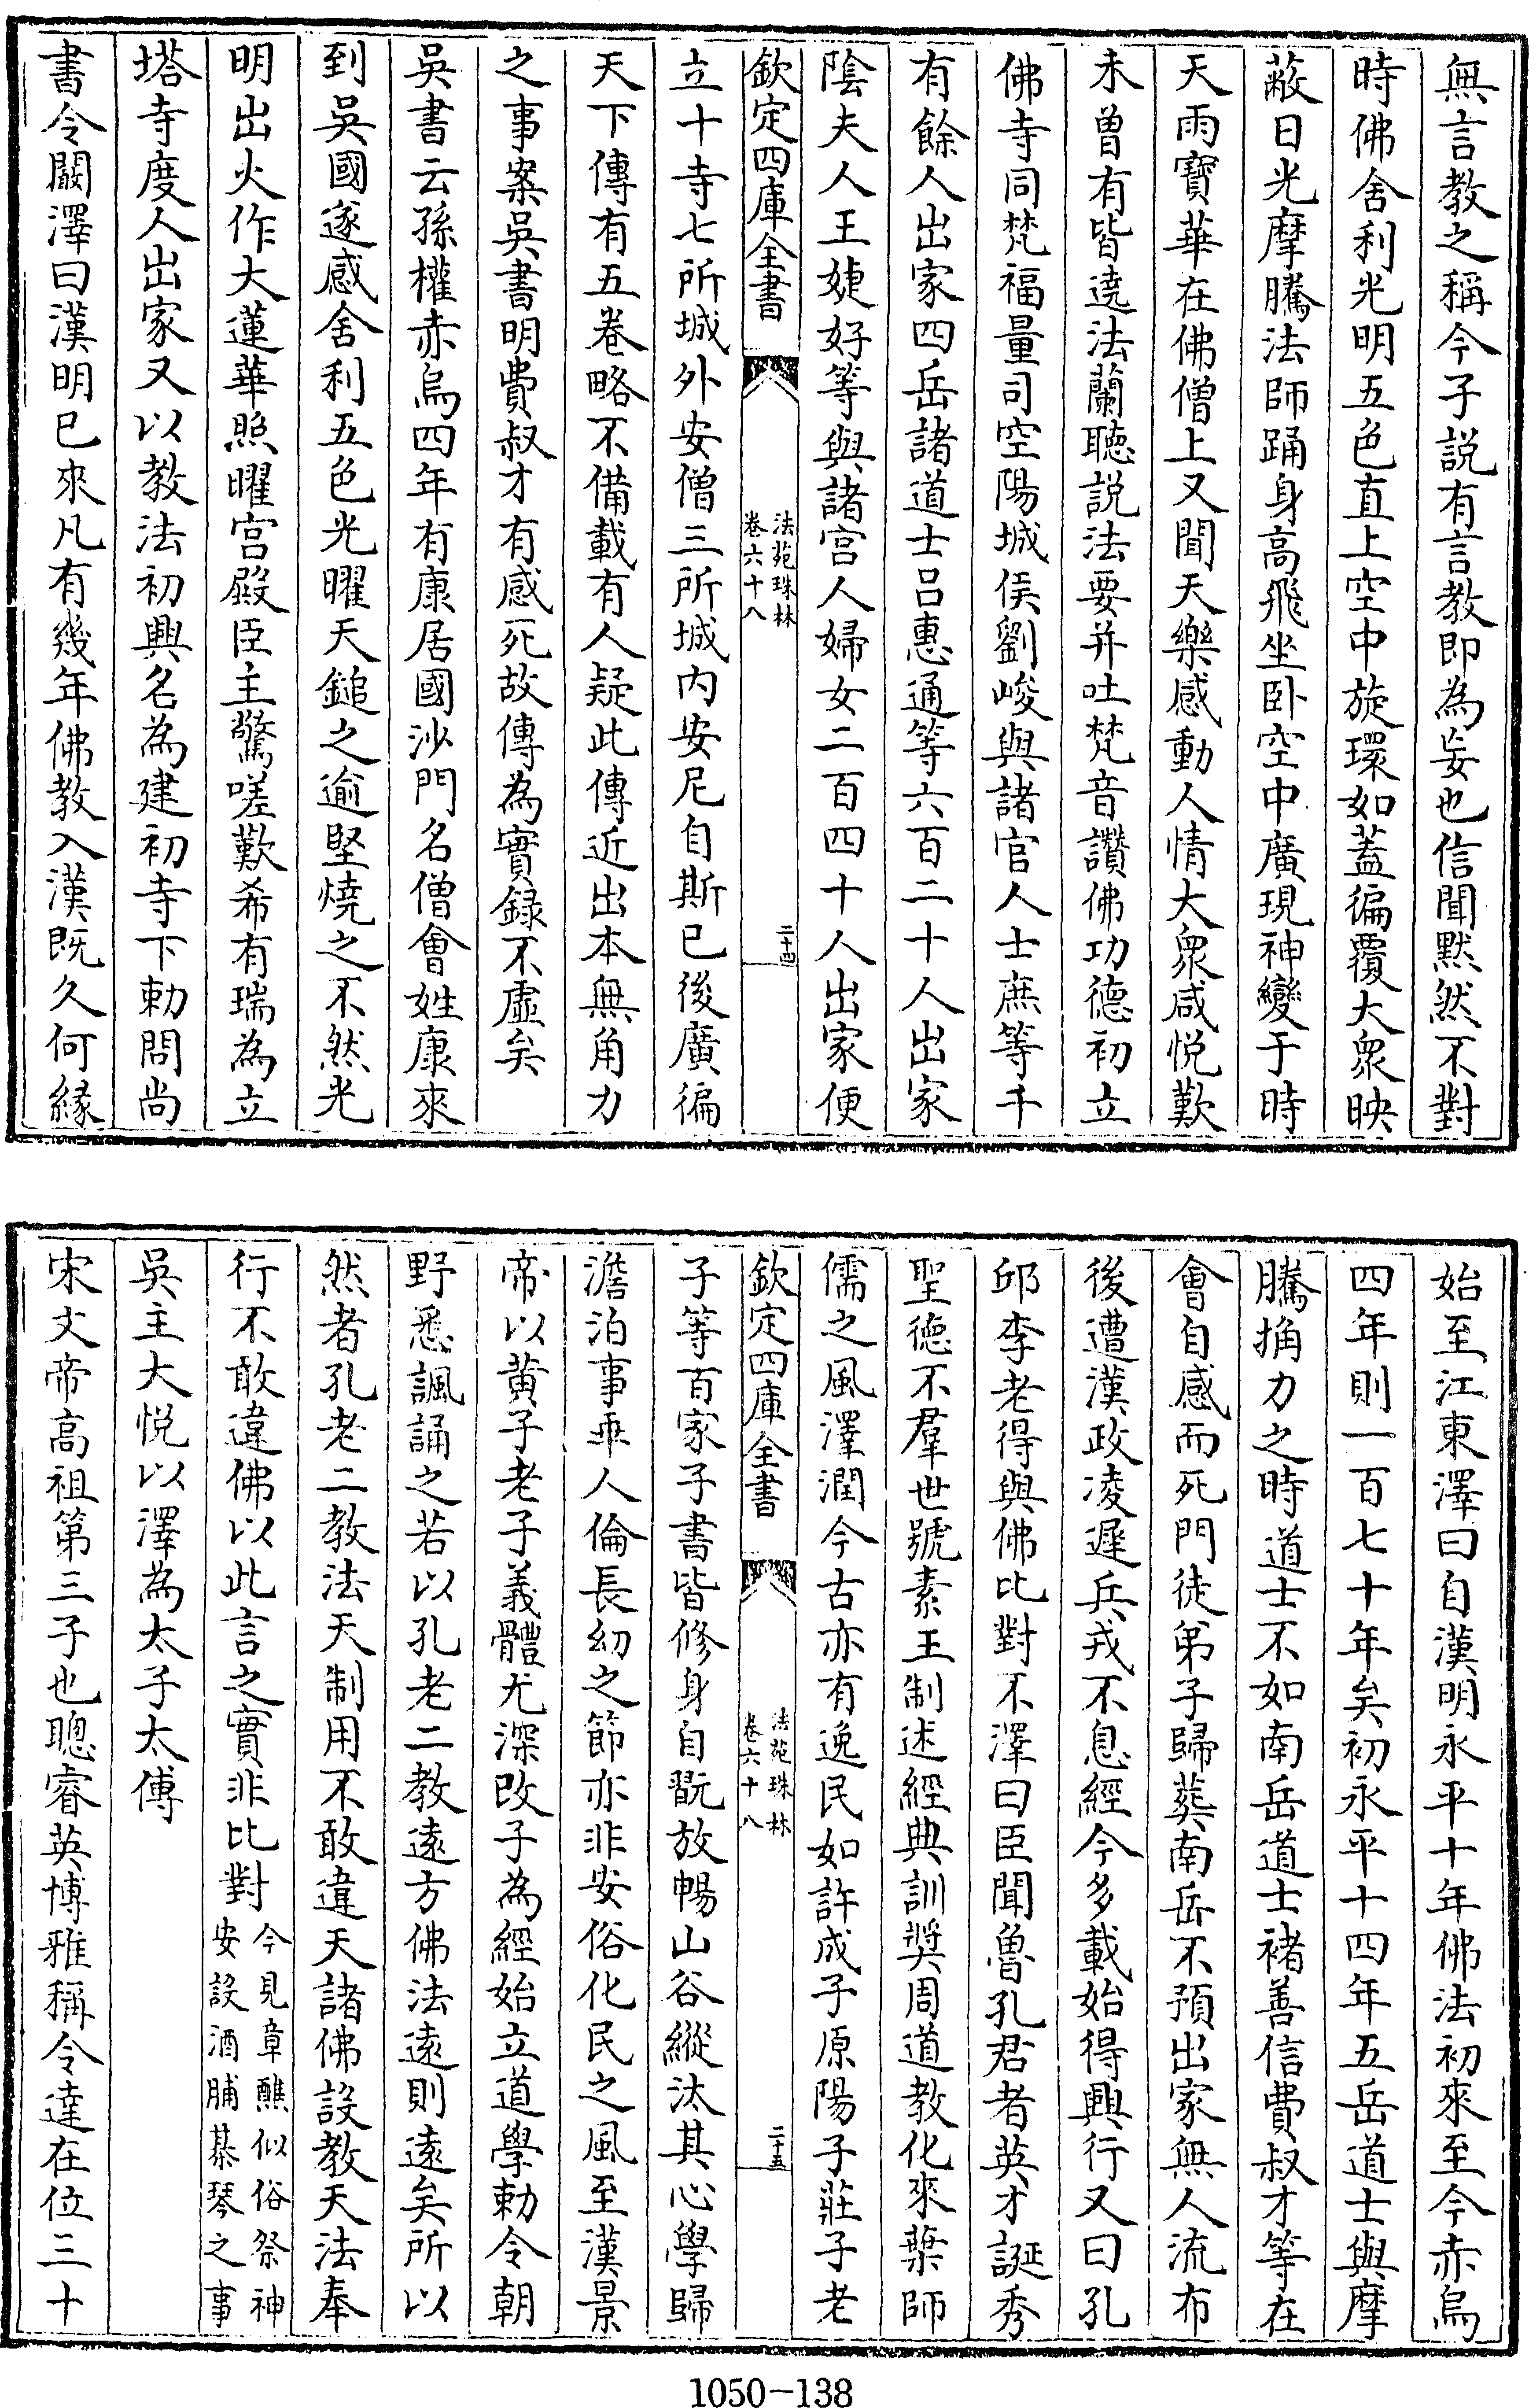 無言教之稱今子説有言教即為妄也信聞默然不對
時佛舍利光明五色直上空中旋環如蓋徧覆大衆映
蔽日光摩騰法師踊身高飛坐卧空中廣現神變于時
天雨寶華在佛僧上又聞天樂感動人情大衆咸悦歎
未曽有皆遶法蘭聽説法要并吐梵音讚佛功德初立
佛寺同梵福量司空陽城侯劉峻與諸官人士庶等千
有餘人出家四岳諸道士吕惠通等六百二十人出家
隂夫人王婕妤等與諸宫人婦女二百四十人出家便
欽定四庫全書
法苑珠林
卷六十八
二十四
立十寺七所城外安僧三所城内安尼自斯已後廣徧
天下傳有五卷略不備載有人疑此傳近出本無角力
之事案吳書明費叔才有感死故傳為實録不虚矣
吳書云孫權赤烏四年有康居國沙門名僧會姓康來
到吳國遂感舍利五色光曜天鎚之逾堅燒之不然光
明出火作大蓮華照曜宫殿臣主驚嗟歎希有瑞為立
塔寺度人出家又以教法初興名為建初寺下勅問尚
書令闞澤曰漢明已來凡有幾年佛教入漢既久何緣
始至江東澤曰自漢明永平十年佛法初來至今赤烏
四年則一百七十年矣初永平十四年五岳道士與摩
騰捔力之時道士不如南岳道士褚善信費叔才等在
會自感而死門徒弟子歸葬南岳不預出家無人流布
後遭漢政凌遲兵戎不息經今多載始得興行又曰孔
邱李老得與佛比對不澤曰臣聞魯孔君者英才誕秀
聖德不羣世號素王制述經典訓奬周道教化來葉師
儒之風澤潤今古亦有逸民如許成子原陽子莊子老
欽定四庫全書
法苑珠林
卷六十八
二十五
子等百家子書皆修身自翫放暢山谷縱汰其心學歸
澹泊事乖人倫長幼之節亦非安俗化民之風至漢景
帝以黄子老子義體尤深改子為經始立道學勅令朝
野悉諷誦之若以孔老二教逺方佛法逺則逺矣所以
然者孔老二教法天制用不敢違天諸佛設教天法奉
行不敢違佛以此言之實非比對今見章醮似俗祭神
安設酒脯棊琴之事
吳主大悦以澤為太子太傅
宋文帝高祖第三子也聰睿英博雅稱令達在位三十
1050-138